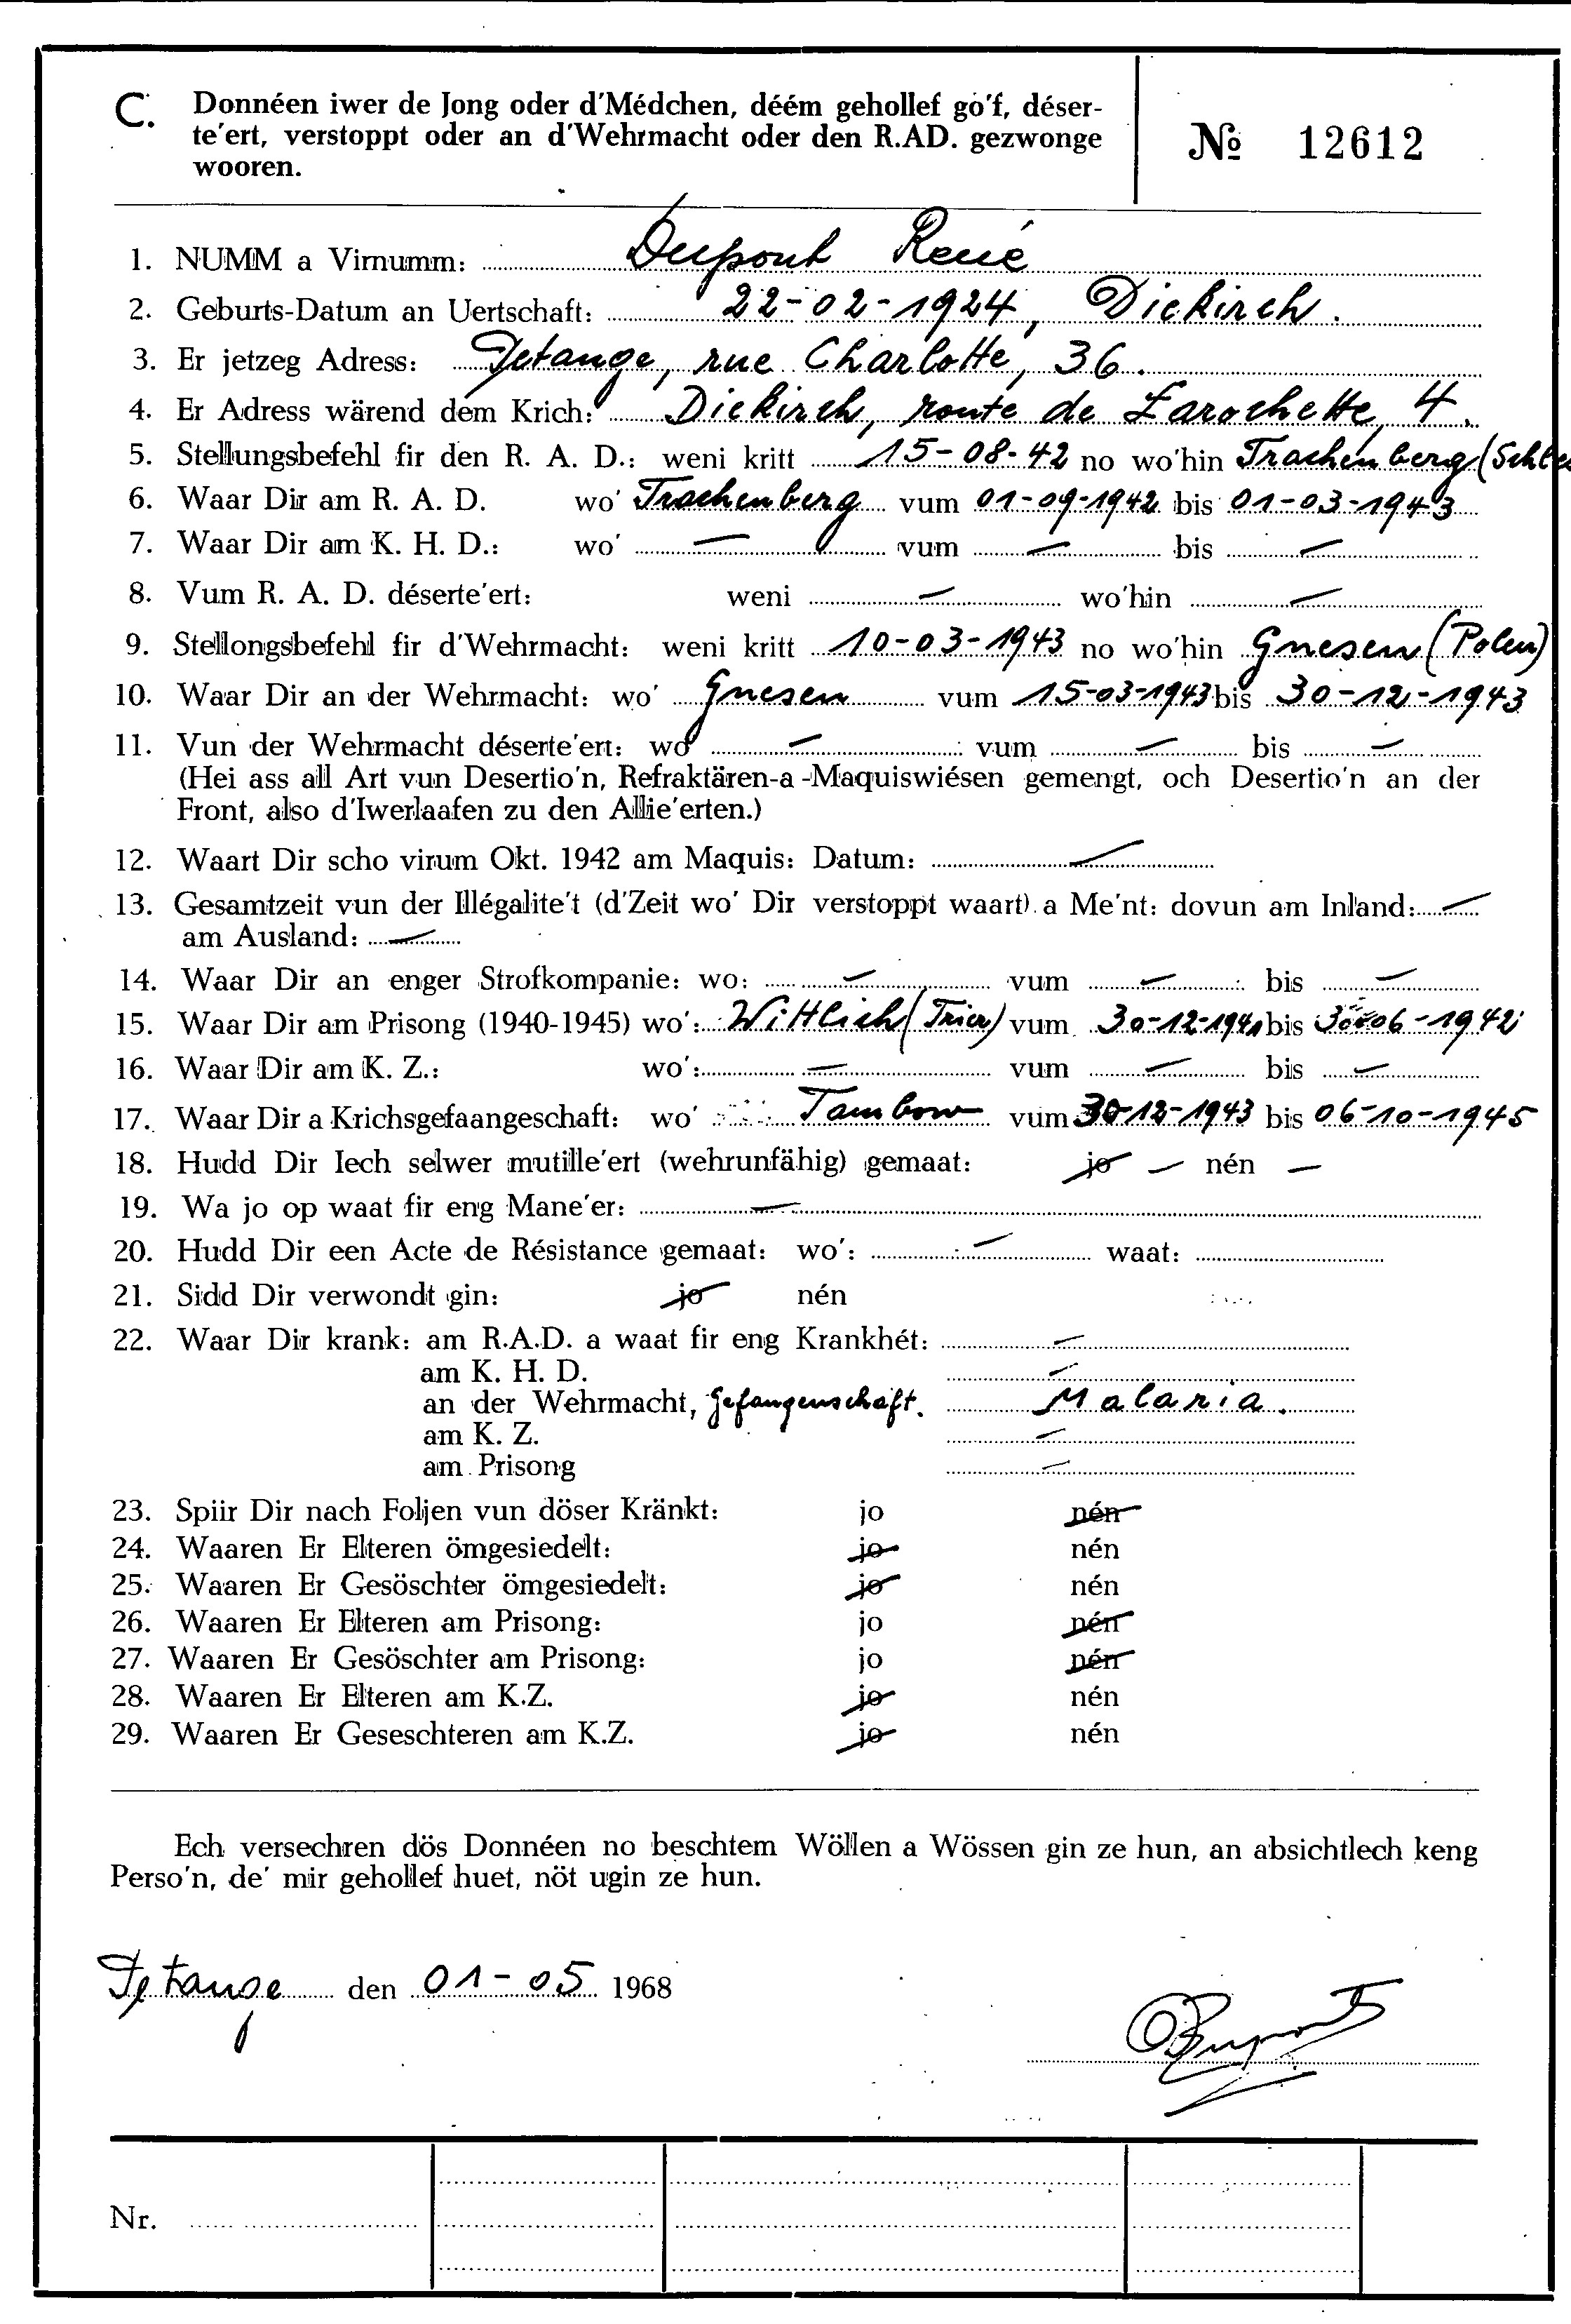 C. Donnéen iwer de Jong oder d'Médchen, déém gehollef go'f, déser-
te'ert, verstoppt oder an d'Wehrmacht oder den R.AD. gezwonge
wooren.
№ 12612
1. NUMM a Virnumm: Dupont René
2. Geburts-Datum an Uertschaft: 22-02-1924, Diekirch.
3. Er jetzeg Adress: Tétange, rue Charlotte, 36.
4. Er Adress wärend dem Krich: Diekirch, route de Larochette, 4.
5. Stellungsbefehl fir den R. A. D.: weni kritt 15-08-42 no wo'hin Trachenberg (Schles
6. Waar Dir am R. A. D. wo' Trachenberg vum 01-09-1942 bis 01-03-1943
7. Waar Dir am K. H. D.: wo' — vum — bis —
8. Vum R. A. D. déserte'ert: weni — wo'hin —
9. Stellongsbefehl fir d'Wehrmacht: weni kritt 10-03-1943 no wo'hin Gnesen (Polen)
10. Waar Dir an der Wehrmacht: wo' Gnesen vum 15-03-1943 bis 30-12-1943
11. Vun der Wehrmacht déserte'ert: wo' — vum — bis —
(Hei ass all Art vun Desertio'n, Refraktären-a-Maquiswiésen gemengt, och Desertio'n an der
Front, also d'Iwerlaafen zu den Allie'erten.)
12. Waart Dir scho virum Okt. 1942 am Maquis: Datum: —
13. Gesamtzeit vun der Illégalite't (d'Zeit wo' Dir verstoppt waart) a Me'nt: dovun am Inland: —
am Ausland: —
14. Waar Dir an enger Strofkompanie: wo: — vum — bis —
15. Waar Dir am Prisong (1940-1945) wo': Wittlich (Trier) vum 30-12-1941 bis 30-06-1942
16. Waar Dir am K. Z.: wo': — vum — bis —
17. Waar Dir a Krichsgefaangeschaft: wo' Tambow vum 30-12-1943 bis 06-10-1945
18. Hudd Dir Iech selwer mutille'ert (wehrunfähig) gemaat: jo — nén —
19. Wa jo op waat fir eng Mane'er: —
20. Hudd Dir een Acte de Résistance gemaat: wo': — waat:
21. Sidd Dir verwondt gin: jo nén
22. Waar Dir krank: am R.A.D. a waat fir eng Krankhét: —
am K. H. D. —
an der Wehrmacht, Gefangenschaft. Malaria.
am K. Z. —
am Prisong —
23. Spiir Dir nach Foljen vun döser Kränkt: jo nén
24. Waaren Er Elteren ömgesiedelt: jo nén
25. Waaren Er Gesöschter ömgesiedelt: jo nén
26. Waaren Er Elteren am Prisong: jo nén
27. Waaren Er Gesöschter am Prisong: jo nén
28. Waaren Er Elteren am K.Z. jo nén
29. Waaren Er Geseschteren am K.Z. jo nén
Ech versechren dös Donnéen no beschtem Wöllen a Wössen gin ze hun, an absichtlech keng
Perso'n, de' mir gehollef huet, nöt ugin ze hun.
Tétange den 01-05 1968
Dupont
Nr.